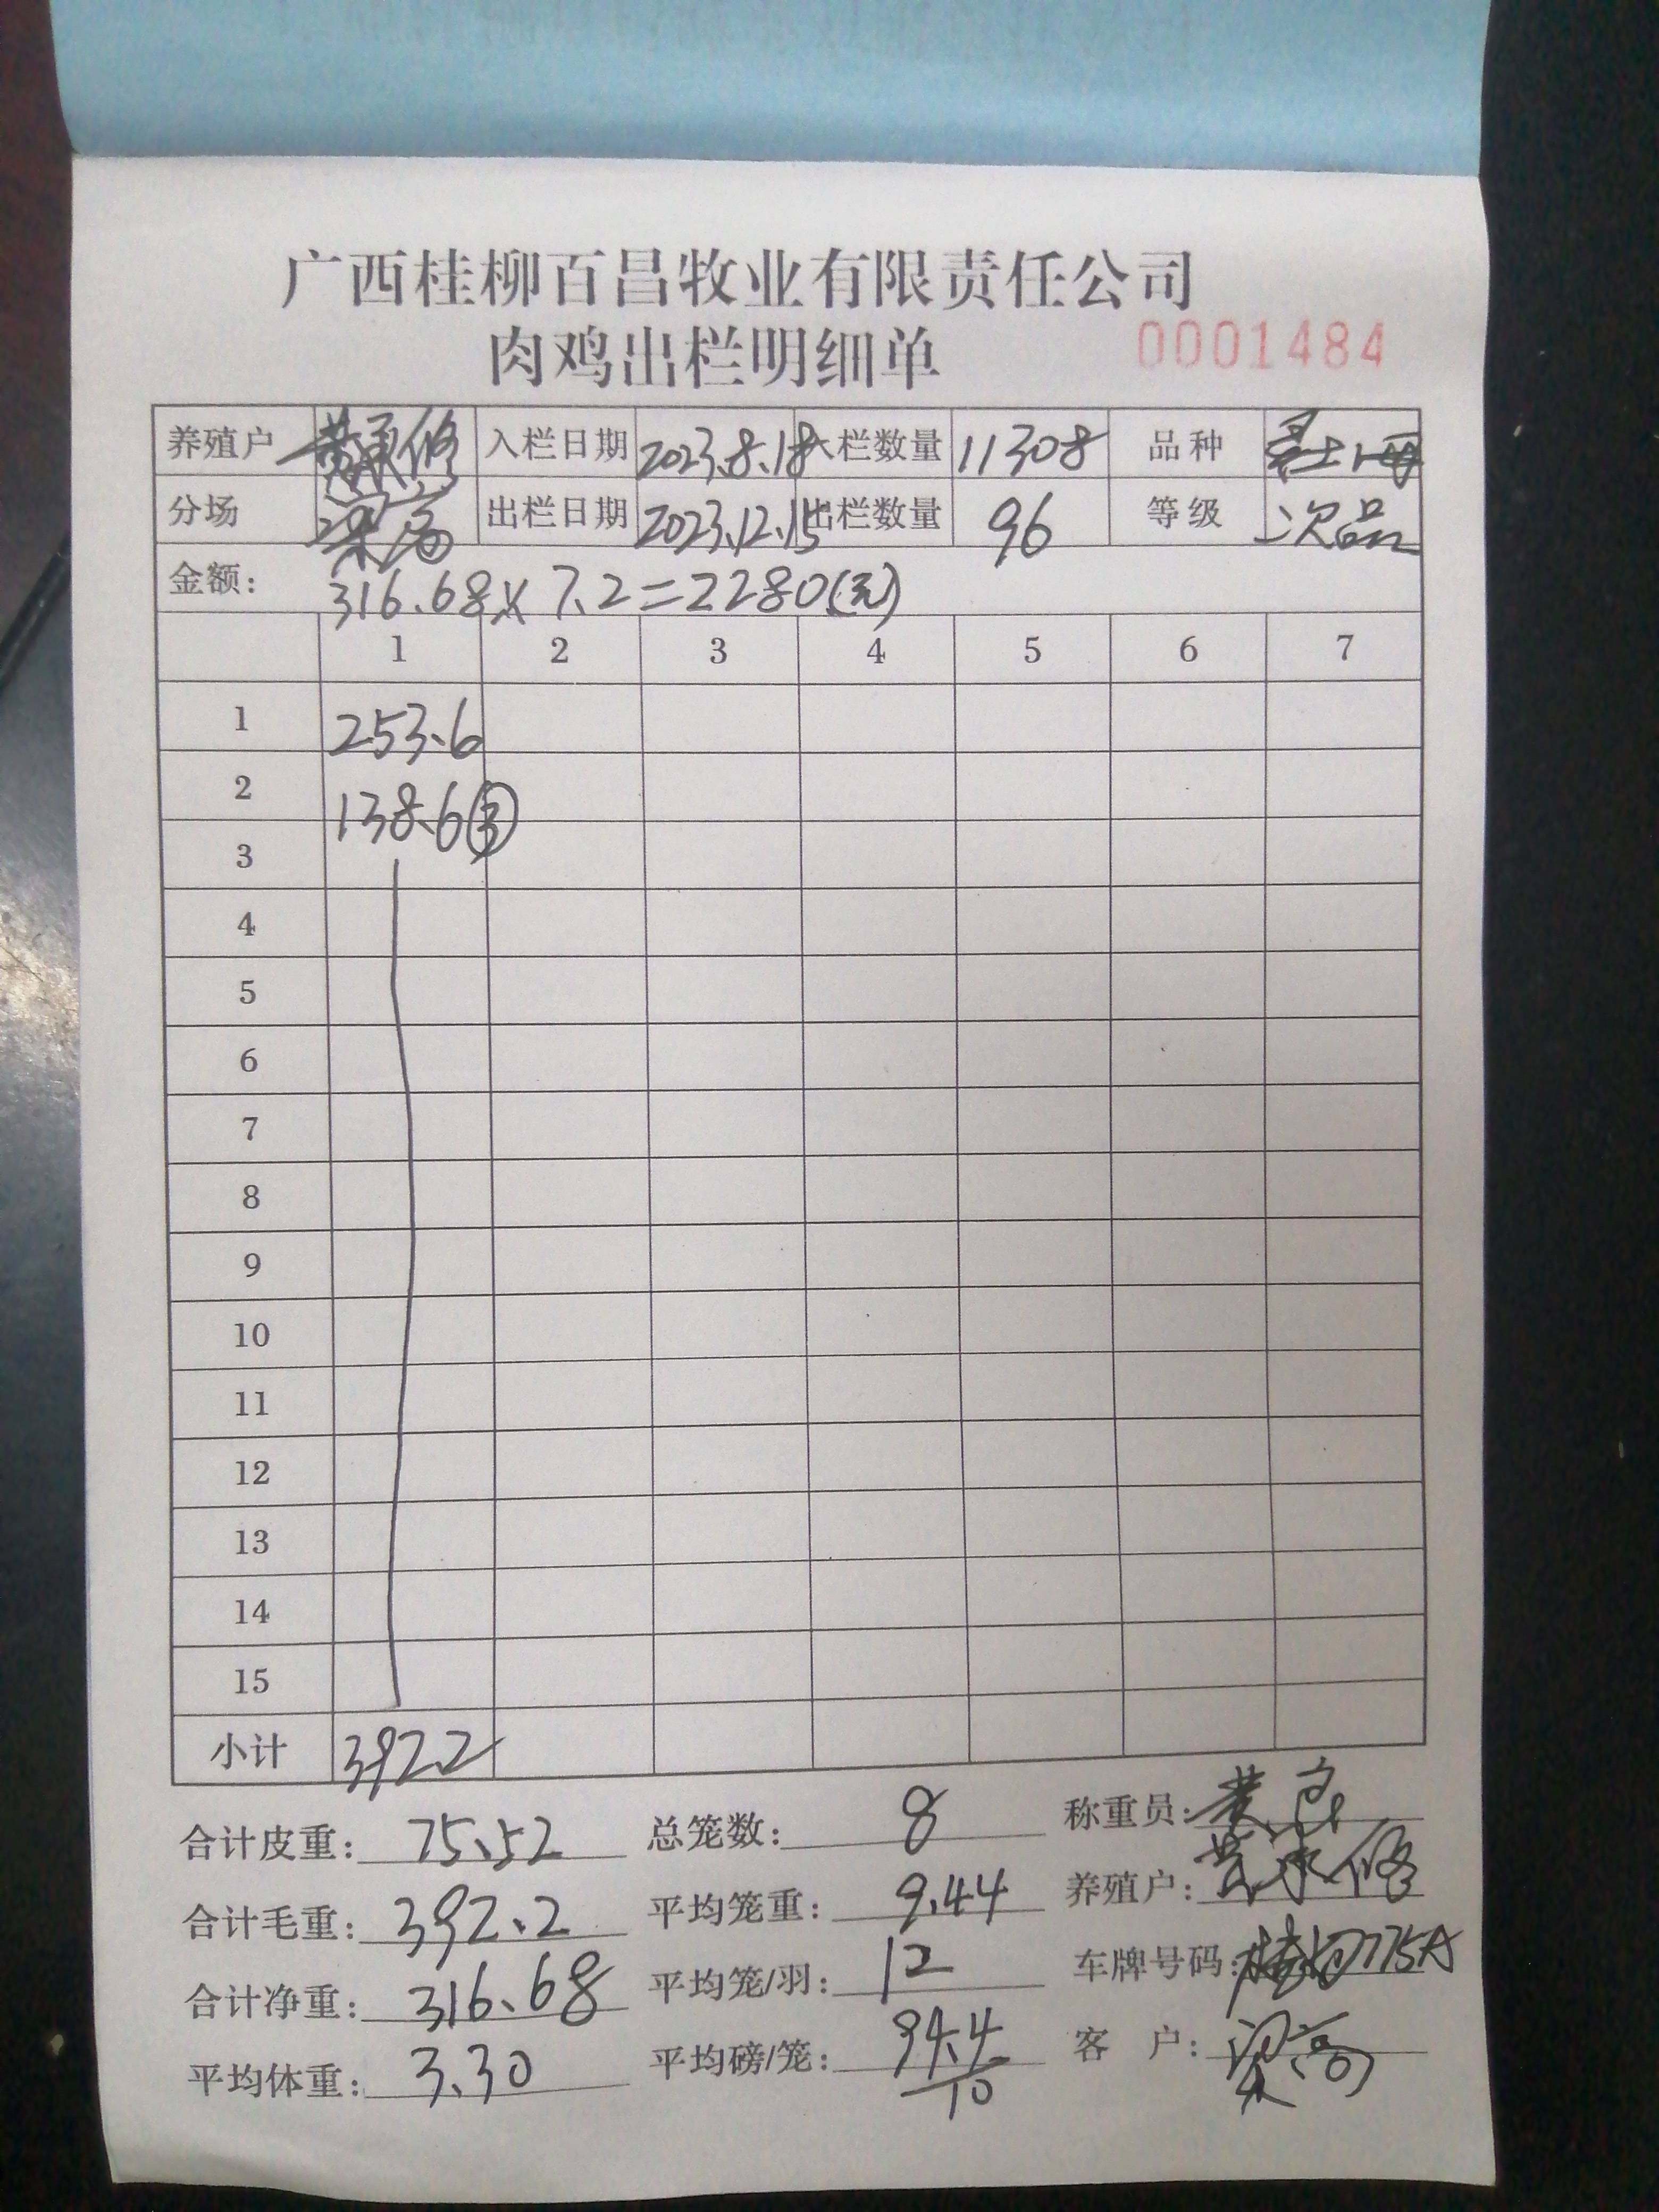 广西桂柳百昌牧业有限责任公司
肉鸡出栏明细单 0001484
养殖户 黄承修 入栏日期 2023.8.18 入栏数量 11308 品种
分场 出栏日期 2023.12.15 出栏数量 96 等级 次品
金额: 316.68×7.2=2280(元)
1 2 3 4 5 6 7
1 253.6
2 138.6③
3
4
5
6
7
8
9
10
11
12
13
14
15
小计 392.2
合计皮重: 75.52 总笼数: 8 称重员: 黄
合计毛重: 392.2 平均笼重: 9.44 养殖户: 黄承修
合计净重: 316.68 平均笼/羽: 12 车牌号码: 775A
平均体重: 3.30 平均磅/笼: 94.4/10 客户: 梁高